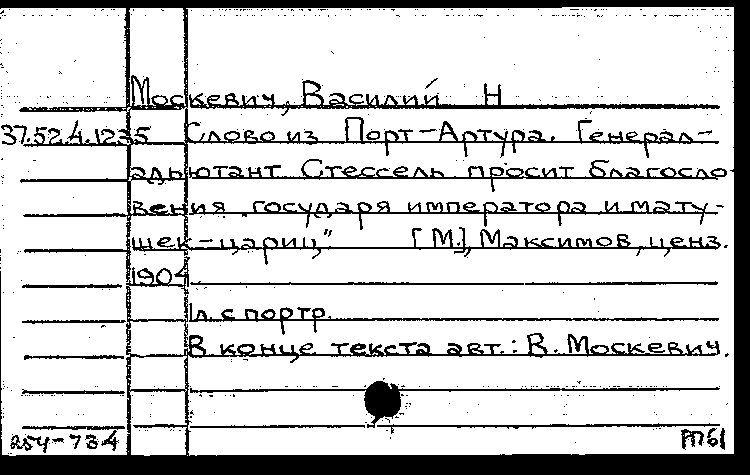 Москевич, Василий Н
37.52.4.1235 Слово из Порт-Артура. Генерал-
адьютант Стессель просит благосло-
вения „государя императора и мату-
шек-цариц”. [М.], Максимов, ценз.
1904.
1л. с портр.
В конце текста авт.: В. Москевич.
254-734 РП61